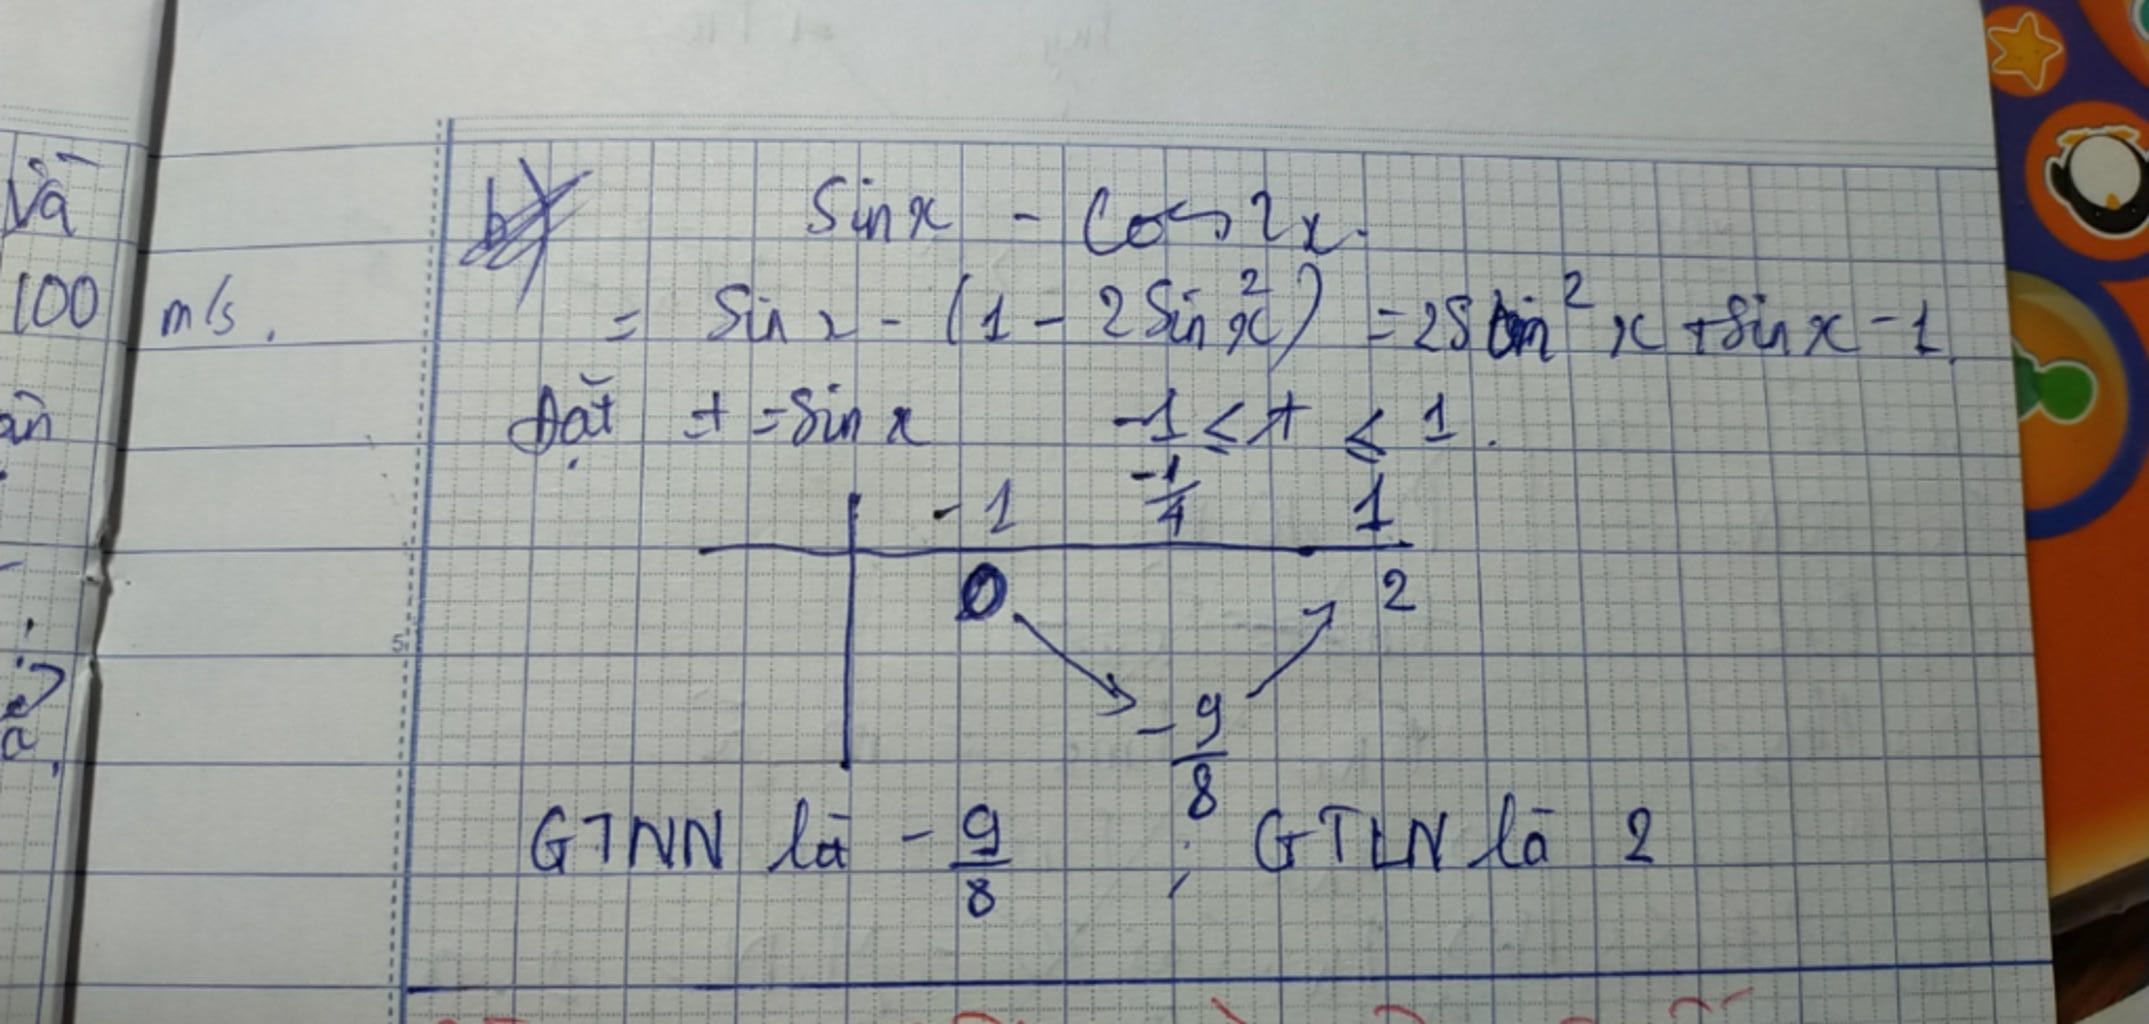 và
100 m/s.
b)
Sinx - Cos2x.
= Sinx - (1 - 2Sin²x) = 2Sin²x + Sinx - 1.
Đặt t = Sinx -1 ≤ t ≤ 1.
-1 -1/4 1
0 2
-9/8
GTNN là -9/8 ; GTLN là 2
5